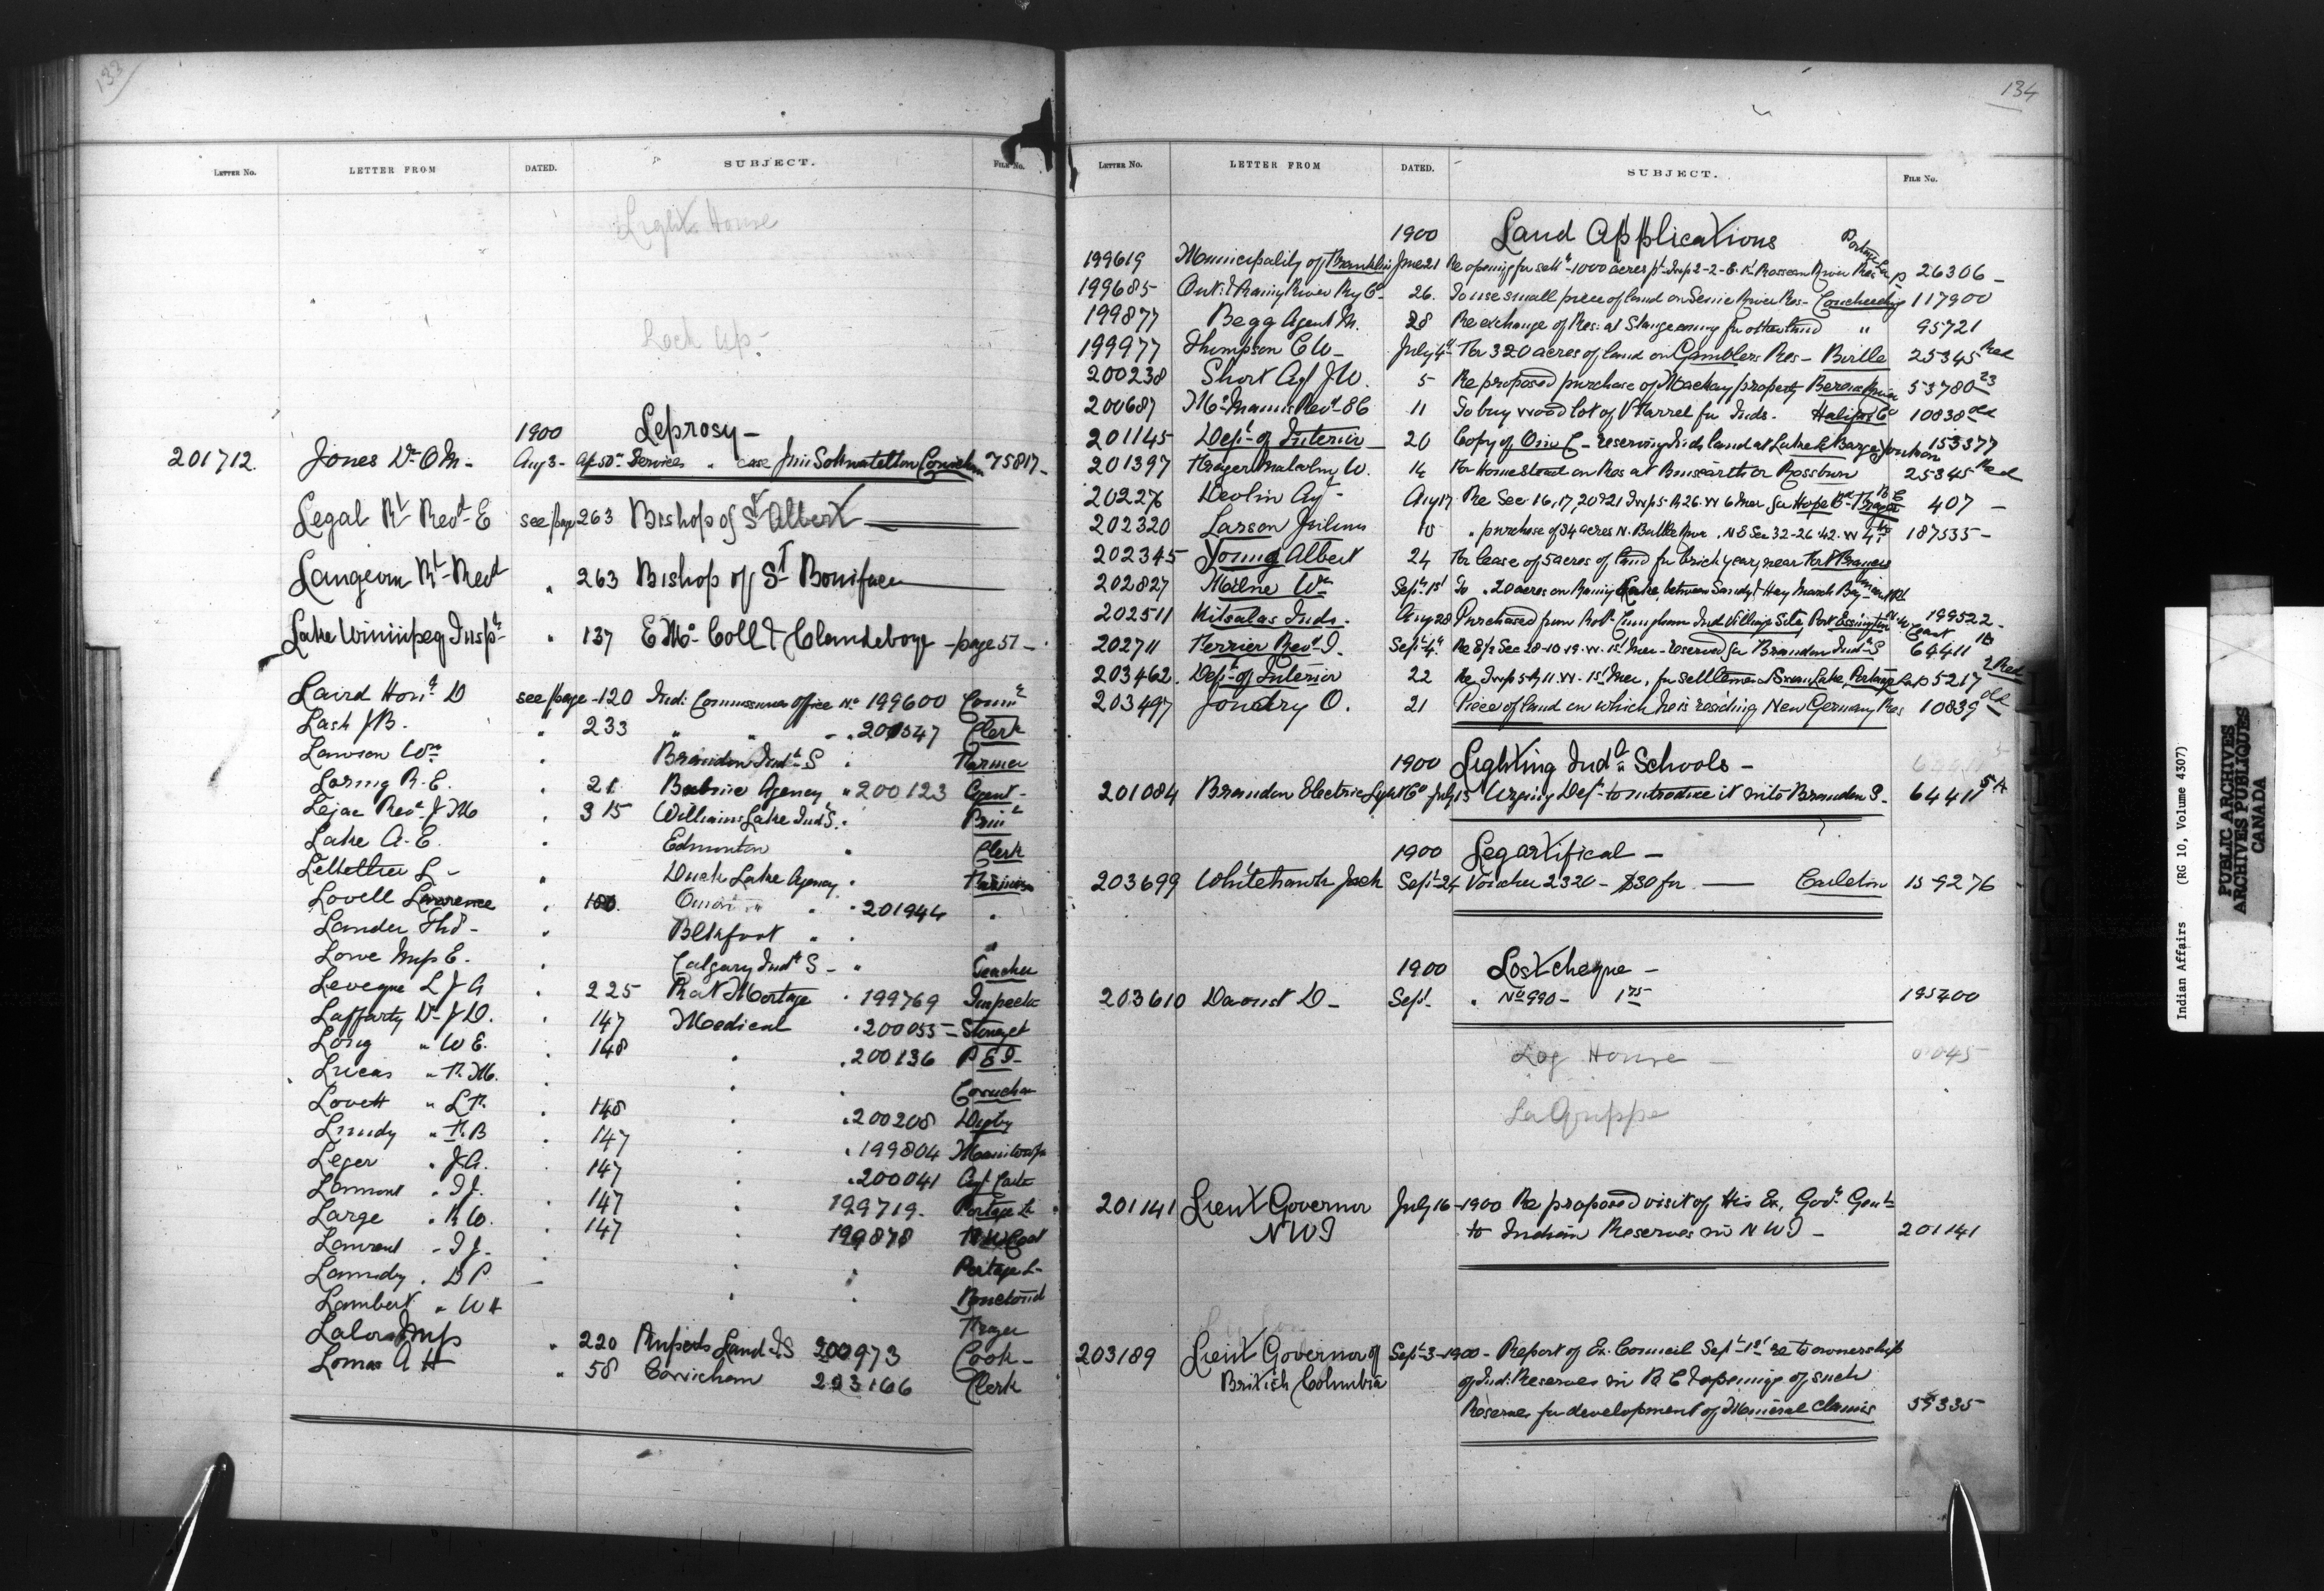 133
LETTER No. LETTER FROM DATED. SUBJECT. FILE No.
Light House
Lock up-
1900 Leprosy -
201712. Jones Dr O M. - Aug 3 - Services case Cowichan 75817-
Legal Rt Revd E see page 263 Bishop of St Albert
Langevin Rt Revd " 263 Bishop of St Boniface
Lake Winnipeg Inspr " 137 E Mc Coll & Clandeboye - page 57 -
Laird Honr D see page - 120 Ind: Commissioner Office No 199600 Commr
Lash J B. " 233 " " " Clerk
Lawson Wm " Brandon Indl S " Farmer
Loring R. E. " 21 Babine Agency " 200123 Agent -
Lejac Revd J M " 315 Williams Lake Ind S. " Prinl
Lake A. E. " Edmonton " Clerk
L - " Duck Lake Agency "
Lovell Lawrence " " 201944 "
Lander Thd - " Blkfoot " "
Lowe Mrs E. " Calgary Indl S - " Teacher
Leveque L J A " 225 Rat Portage " 199769 Inspectr
Lafferty Dr J D. " 147 Medical " 200055 - Stoney
Long " W E. " 148 " " 200136 P E I -
Lucas " R. M. " " " Cowichan
Lovett " L R. " 148 " 200208 Digby
Lundy " F. B " 147 " 199804
Leger " J A. " 147 " 200041
Lamont " 147 " 199719. Portage L
Large " R W. " 147 " 199878
Laurent " " " Portage L-
" D P - " Bonctouch
Lambert " W H Fraser
Lalor Mrs " 220 Ruperts Land I S 200973 Cook -
Lomas A H " 58 Cowichan 203166 Clerk
134
LETTER No. LETTER FROM DATED. SUBJECT. FILE No.
1900 Land Applications
199619 Municipality of Franklin June 21 Re opening for settt - 1000 acres pt Twp 2-2-E. Roseau River Res Portage La P 26306 -
199685 Ont: & Rainy River Ry Co - 26. To use small piece of land on Seine River Res - Coucheching 117900
199877 Begg Agent M. 28 Re exchange of Res: at Stangecoming for other land " 95721
199977 Thompson C W - July 4th For 320 acres of land on Gamblers Res - Birtle 25345 Red
200238 Short Agt J W. 5 Re proposed purchase of Mackay property Berens River 53780 23
200687 Revd 11 To buy wood lot of V Farrel for Inds. Halifax Co 10838 old
201145 Dept of Interior 20 Copy of O in C - reserving Inds land at Lake Le Barge Yukon 153377
201397 Malcolm W. 14 For Homestead on Res at Binscarth or Rossburn 25345 Red
202276 Devlin Agt - Aug 17 Re Sec 16,17,20&21 Twp 5 R 26. W 6 Mer for Hope B C Fraser 407 -
202320 Larson Julius 18 " purchase of 34 acres N. Battle River, N E Sec 32-26-42. W 4th 187535 -
202345 Young Albert 24 For lease of 5 acres of land for brick yard, near Fort Frances
202827 Milne Wm Sept 1st To " 20 acres on Rainy Lake, between Sandy & Hay Marsh Bay
202511 Kitsalas Inds. Aug 28 Purchased from Robt Cunningham Ind Village Site, Port Essington 199522 -
202711 Ferrier Revd Sept 4th Re E½ Sec 28-10-19. W. 1st Mer - reserved for Brandon Indl S 64411 1A
203462. Dept of Interior 22 Re Twp 5 R 11. W. 1st Mer, for settlement Swan Lake, Portage La P 5217 2 Red
203497 Joudry O. 21 Piece of land on which he is residing New Germany Res 10839 old
1900 Lighting Indl Schools -
201084 Brandon Electric Light Co July 13 Urging Dept to introduce it into Brandon S. 64411 5A
1900 Leg artifical -
203699 Whitehawk Jack Sept 24 Voucher 2320 - $30 for. —— Carleton 159276
1900 Lost cheque -
203610 Daoust D - Sept. " No 990 - 1 75 195400
Log House -
La Grippe
201141 Lieut Governor July 16 - 1900 Re proposed visit of His Ex, Govr Genl
N W T to Indian Reserves in N W T - 201141
203189 Lieut Governor of Sept 3 - 1900 - Report of Ex. Council Sept 1st re to ownership
British Columbia of Ind: Reserves in B C & opening of such
Reserves for development of Mineral claims 59335
Indian Affairs (RG 10, Volume 4307)
PUBLIC ARCHIVES
ARCHIVES PUBLIQUES
CANADA